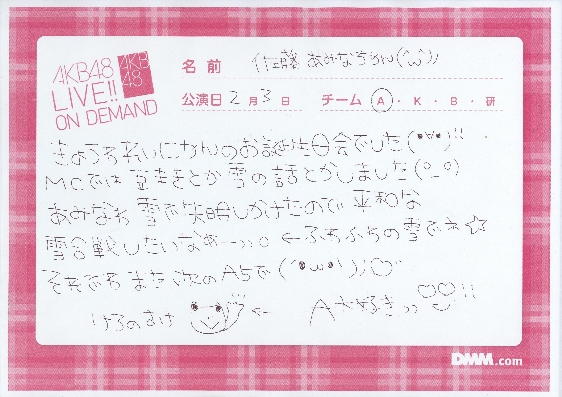 AKB48
LIVE!!
ON DEMAND
AKB
48
名前 佐藤 あみなちゃん(^ω^)ノ
公演日 2 月 3 日 チーム A・K・B・研
きょうも私いにゃんのお誕生日会でした(●'∀'●)!!
MCでは 豆まきとか 雪の話とかしました(o_o)
あみなわ 雪で失明しかけたので 平和な
雪合戦したいなあー→→。 ←ふわふわの雪でネ☆
それでわ また 次のA5で(´●ω●`)ノ♡
けろのすけ ← A大好きっっ!!
DMM.com